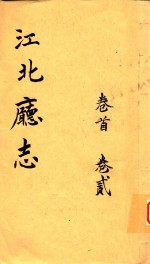 江北廳志
卷首 卷貳